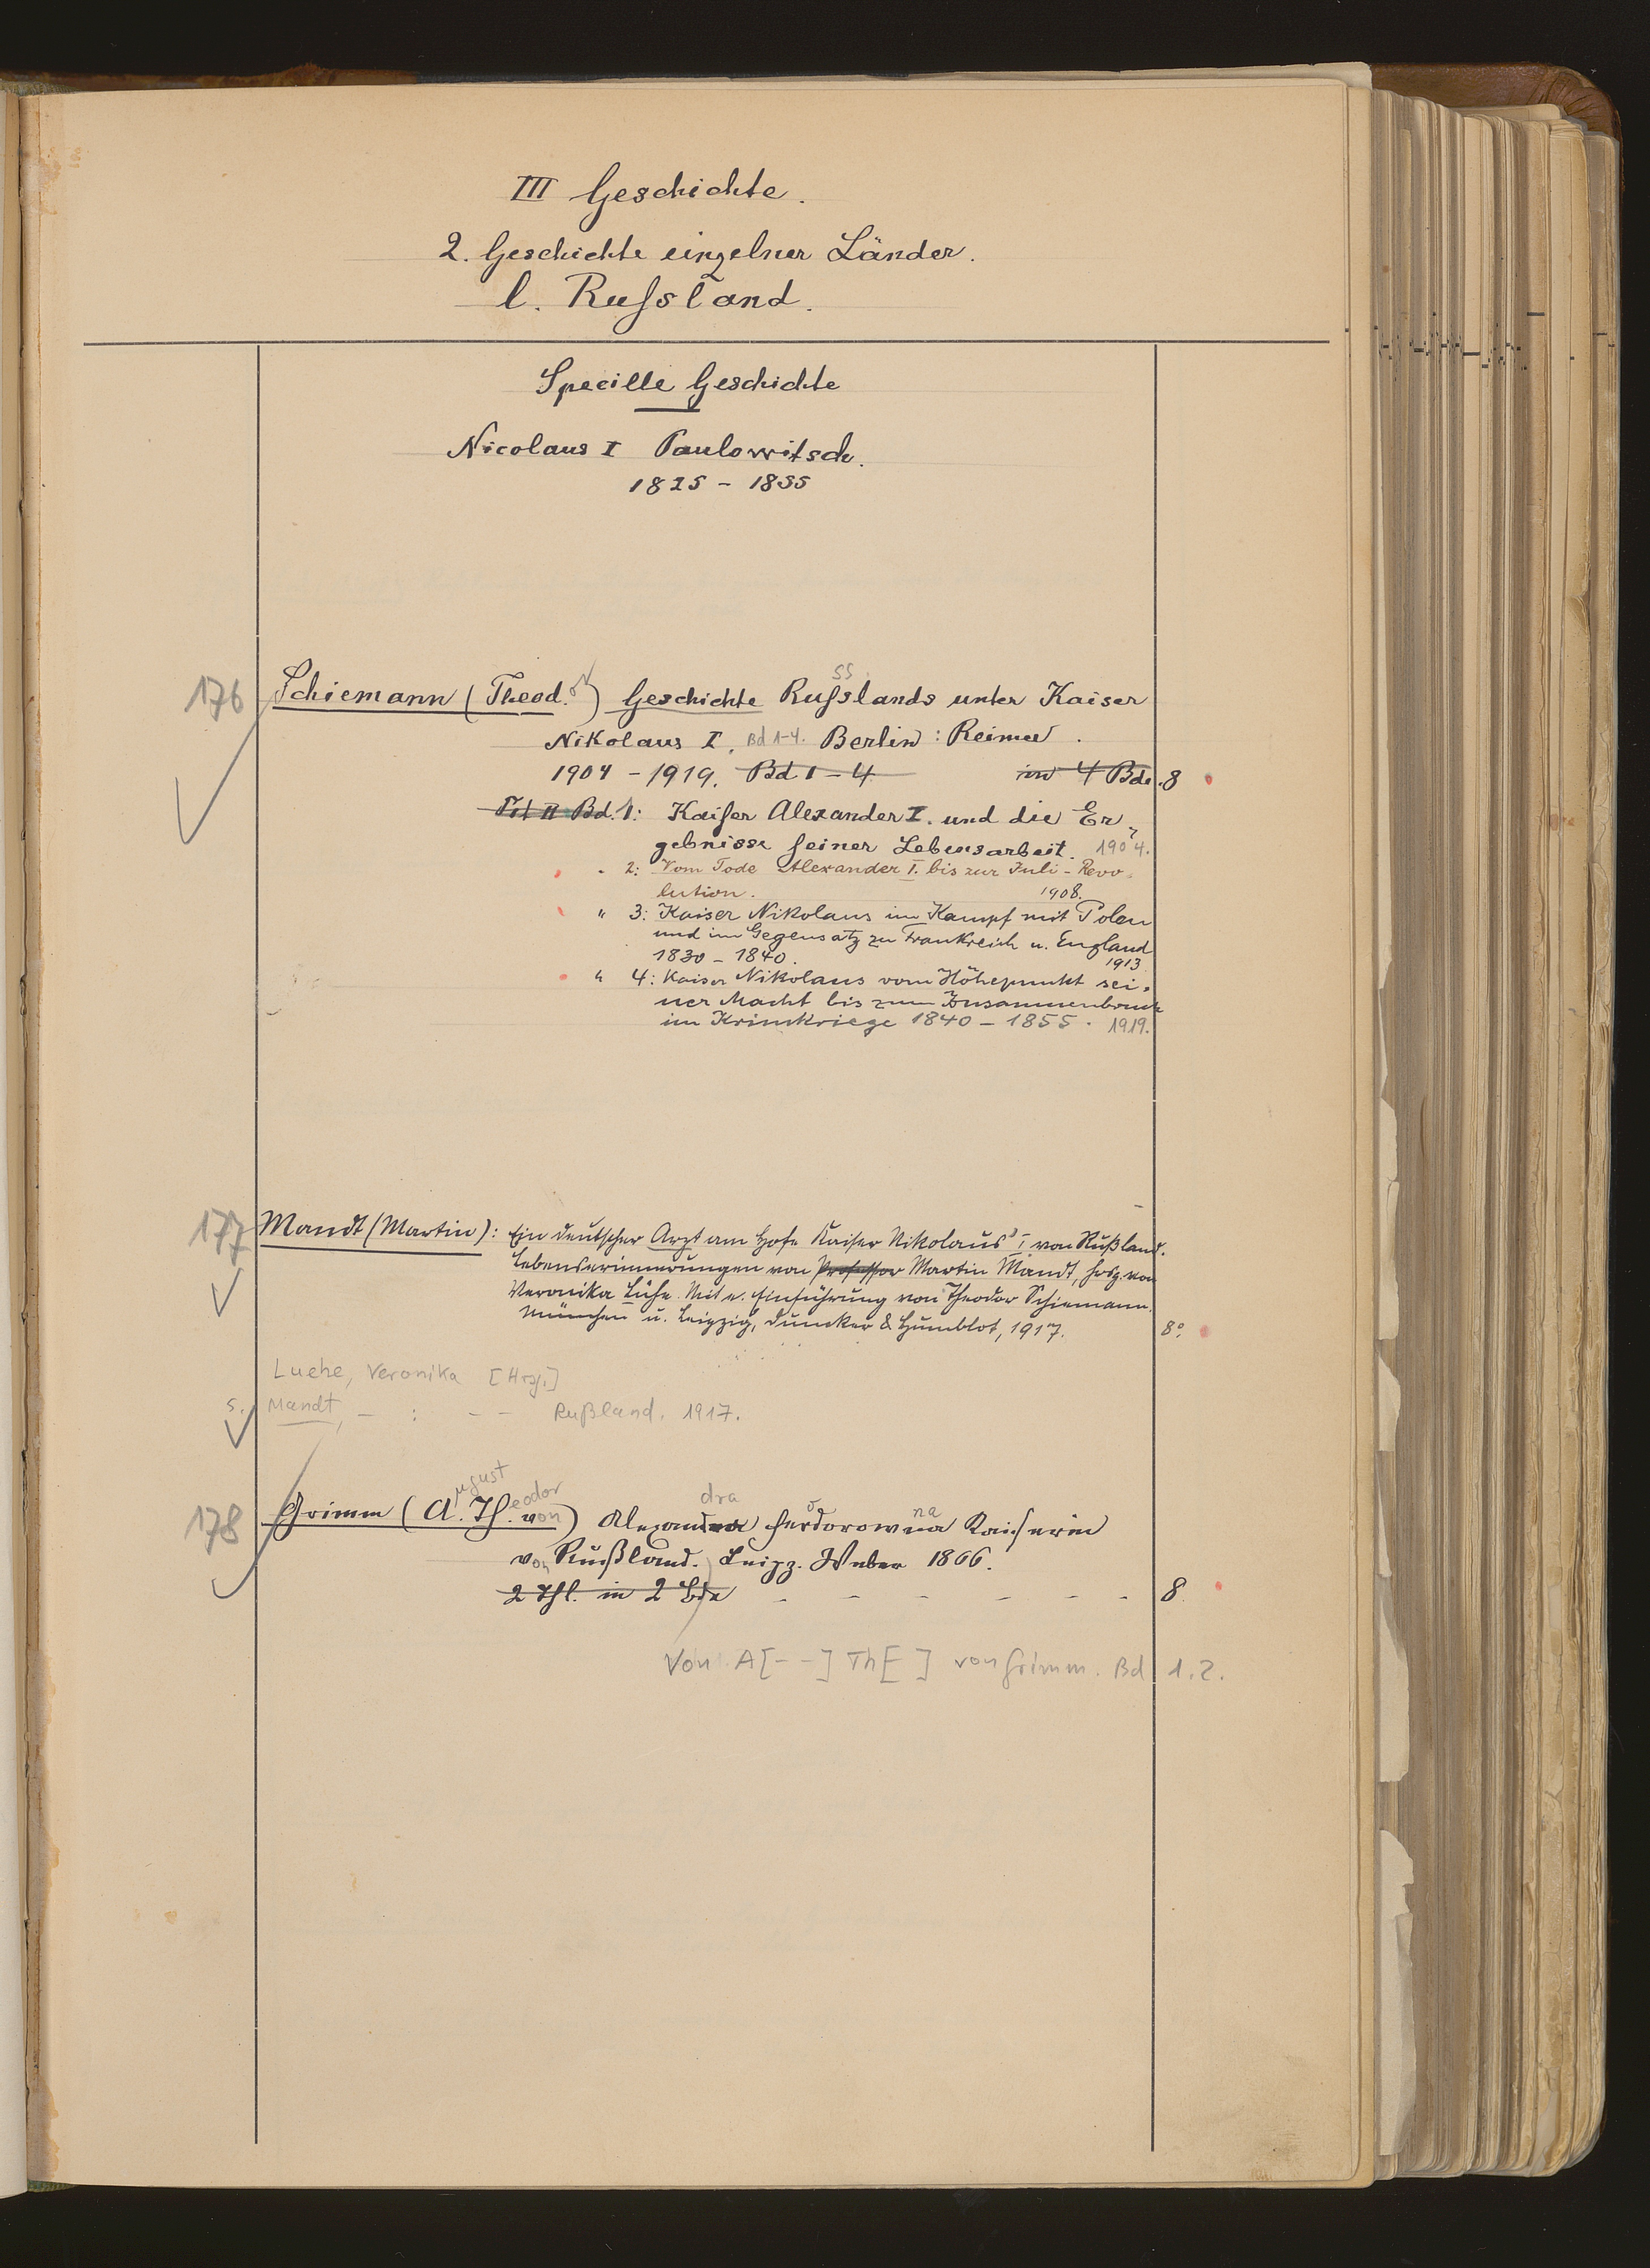 III Geschichte.
2. Geschichte einzelner Länder.
l. Russland.
Specille Geschichte
Nicolaus I Paulowitsch.
1825 - 1855
176 Schiemann (Theod.or) Geschichte Russlands unter Kaiser
Nikolaus I. Bd 1-4. Berlin: Reimer.
1904 - 1919. Bd. 1 - 4 in 4 Bde. 8
Bd. 1: Kaiser Alexander I. und die Er-
gebnisse seiner Lebensarbeit. 1904.
" 2: Vom Tode Alexander I. bis zur Juli-Revo-
lution. 1908.
" 3: Kaiser Nikolaus im Kampf mit Polen
und im Gegensatz zu Frankreich u. England
1830 - 1840. 1913
" 4: Kaiser Nikolaus vom Höhepunkt sei-
ner Macht bis zum Zusammenbruch
im Krimkriege 1840 - 1855. 1919.
177 Mandt (Martin): Ein deutscher Arzt am Hofe Kaiser Nikolaus' I. von Rußland.
Lebenserinnerungen von Professor Martin Mandt, hrsg. von
Veronika Lühe. Mit e. Einführung von Theodor Schiemann.
München u. Leipzig, Duncker & Humblot, 1917. 8°
Luehe, Veronika [Hrsg.]
s. Mandt, - : - - Rußland. 1917.
178 Grimm (August Theodor von) Alexandra Feodorowna Kaiserin
von Rußland. Leipz. Weber 1866.
2 Thl. in 2 Bde - - - - - - 8
Von A[--] Th[ ] von Grimm. Bd 1.2.